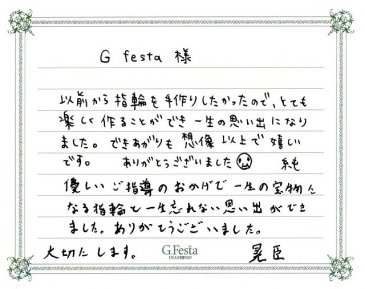 G festa 様
以前から指輪を手作りしたかったので、とても
楽しく作ることができ一生の思い出になり
ました。できあがりも想像以上で嬉しい
です。 ありがとうございました 純
優しいご指導のおかげで一生の宝物に
なる指輪と一生忘れない思い出ができ
ました。ありがとうございました。
大切にします。 晃臣
G.Festa
DIAMOND